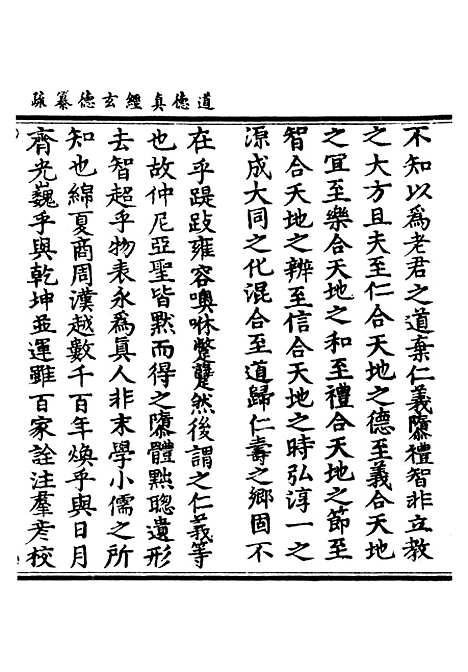 道德真經玄德纂疏
不知以為老君之道棄仁義隳禮智非立教
之大方且夫至仁合天地之德至義合天地
之宜至樂合天地之和至禮合天地之節至
智合天地之辨至信合天地之時弘淳一之
源成大同之化混合至道歸仁壽之鄉固不
在乎踶跂雍容噢咻蹩躠然後謂之仁義等
也故仲尼亞聖皆默而得之隳體黜聰遺形
去智超乎物表永為真人非末學小儒之所
知也綿夏商周漢越數千百年煥乎與日月
齊光巍乎與乾坤並運雖百家詮注羣彥校